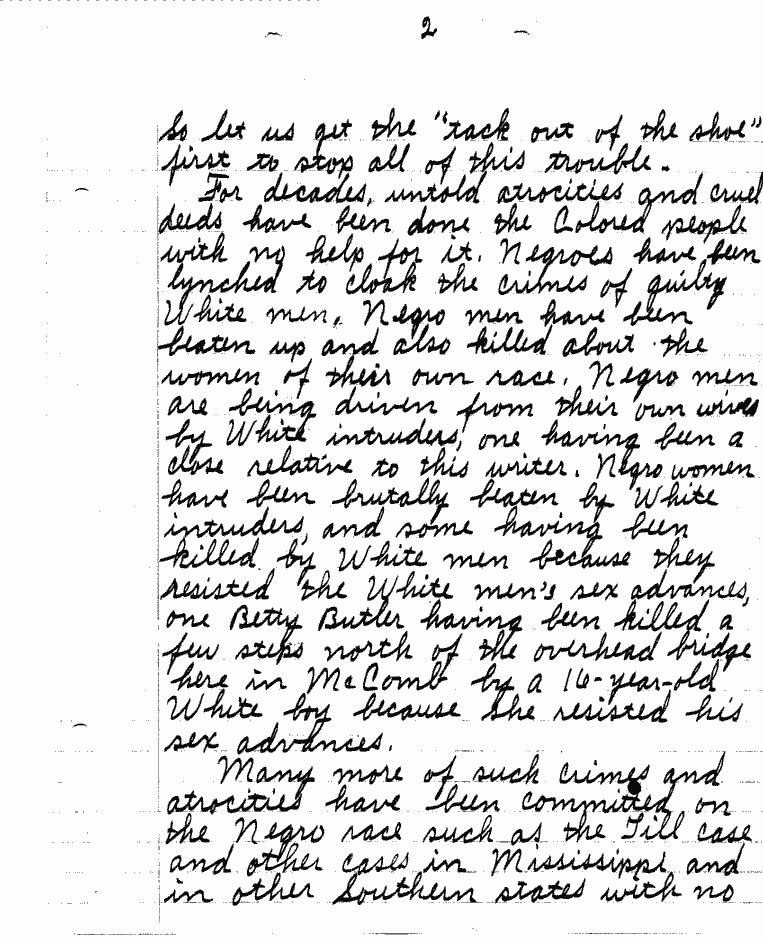 2
So let us get the "tack out of the shoe"
first to stop all of this trouble.
For decades, untold atrocities and cruel
deeds have been done the Colored people
with no help for it. Negroes have been
lynched to cloak the crimes of guilty
White men. Negro men have been
beaten up and also killed about the
women of their own race. Negro men
are being driven from their own wives
by White intruders, one having been a
close relative to this writer. Negro women
have been brutally beaten by White
intruders, and some having been
killed by White men because they
resisted the White men's sex advances,
one Betty Butler having been killed a
few steps north of the overhead bridge
here in McComb by a 16-year-old
White boy because she resisted his
sex advances.
Many more of such crimes and
atrocities have been committed on
the Negro race such as the Till case
and other cases in Mississippi and
in other Southern states with no